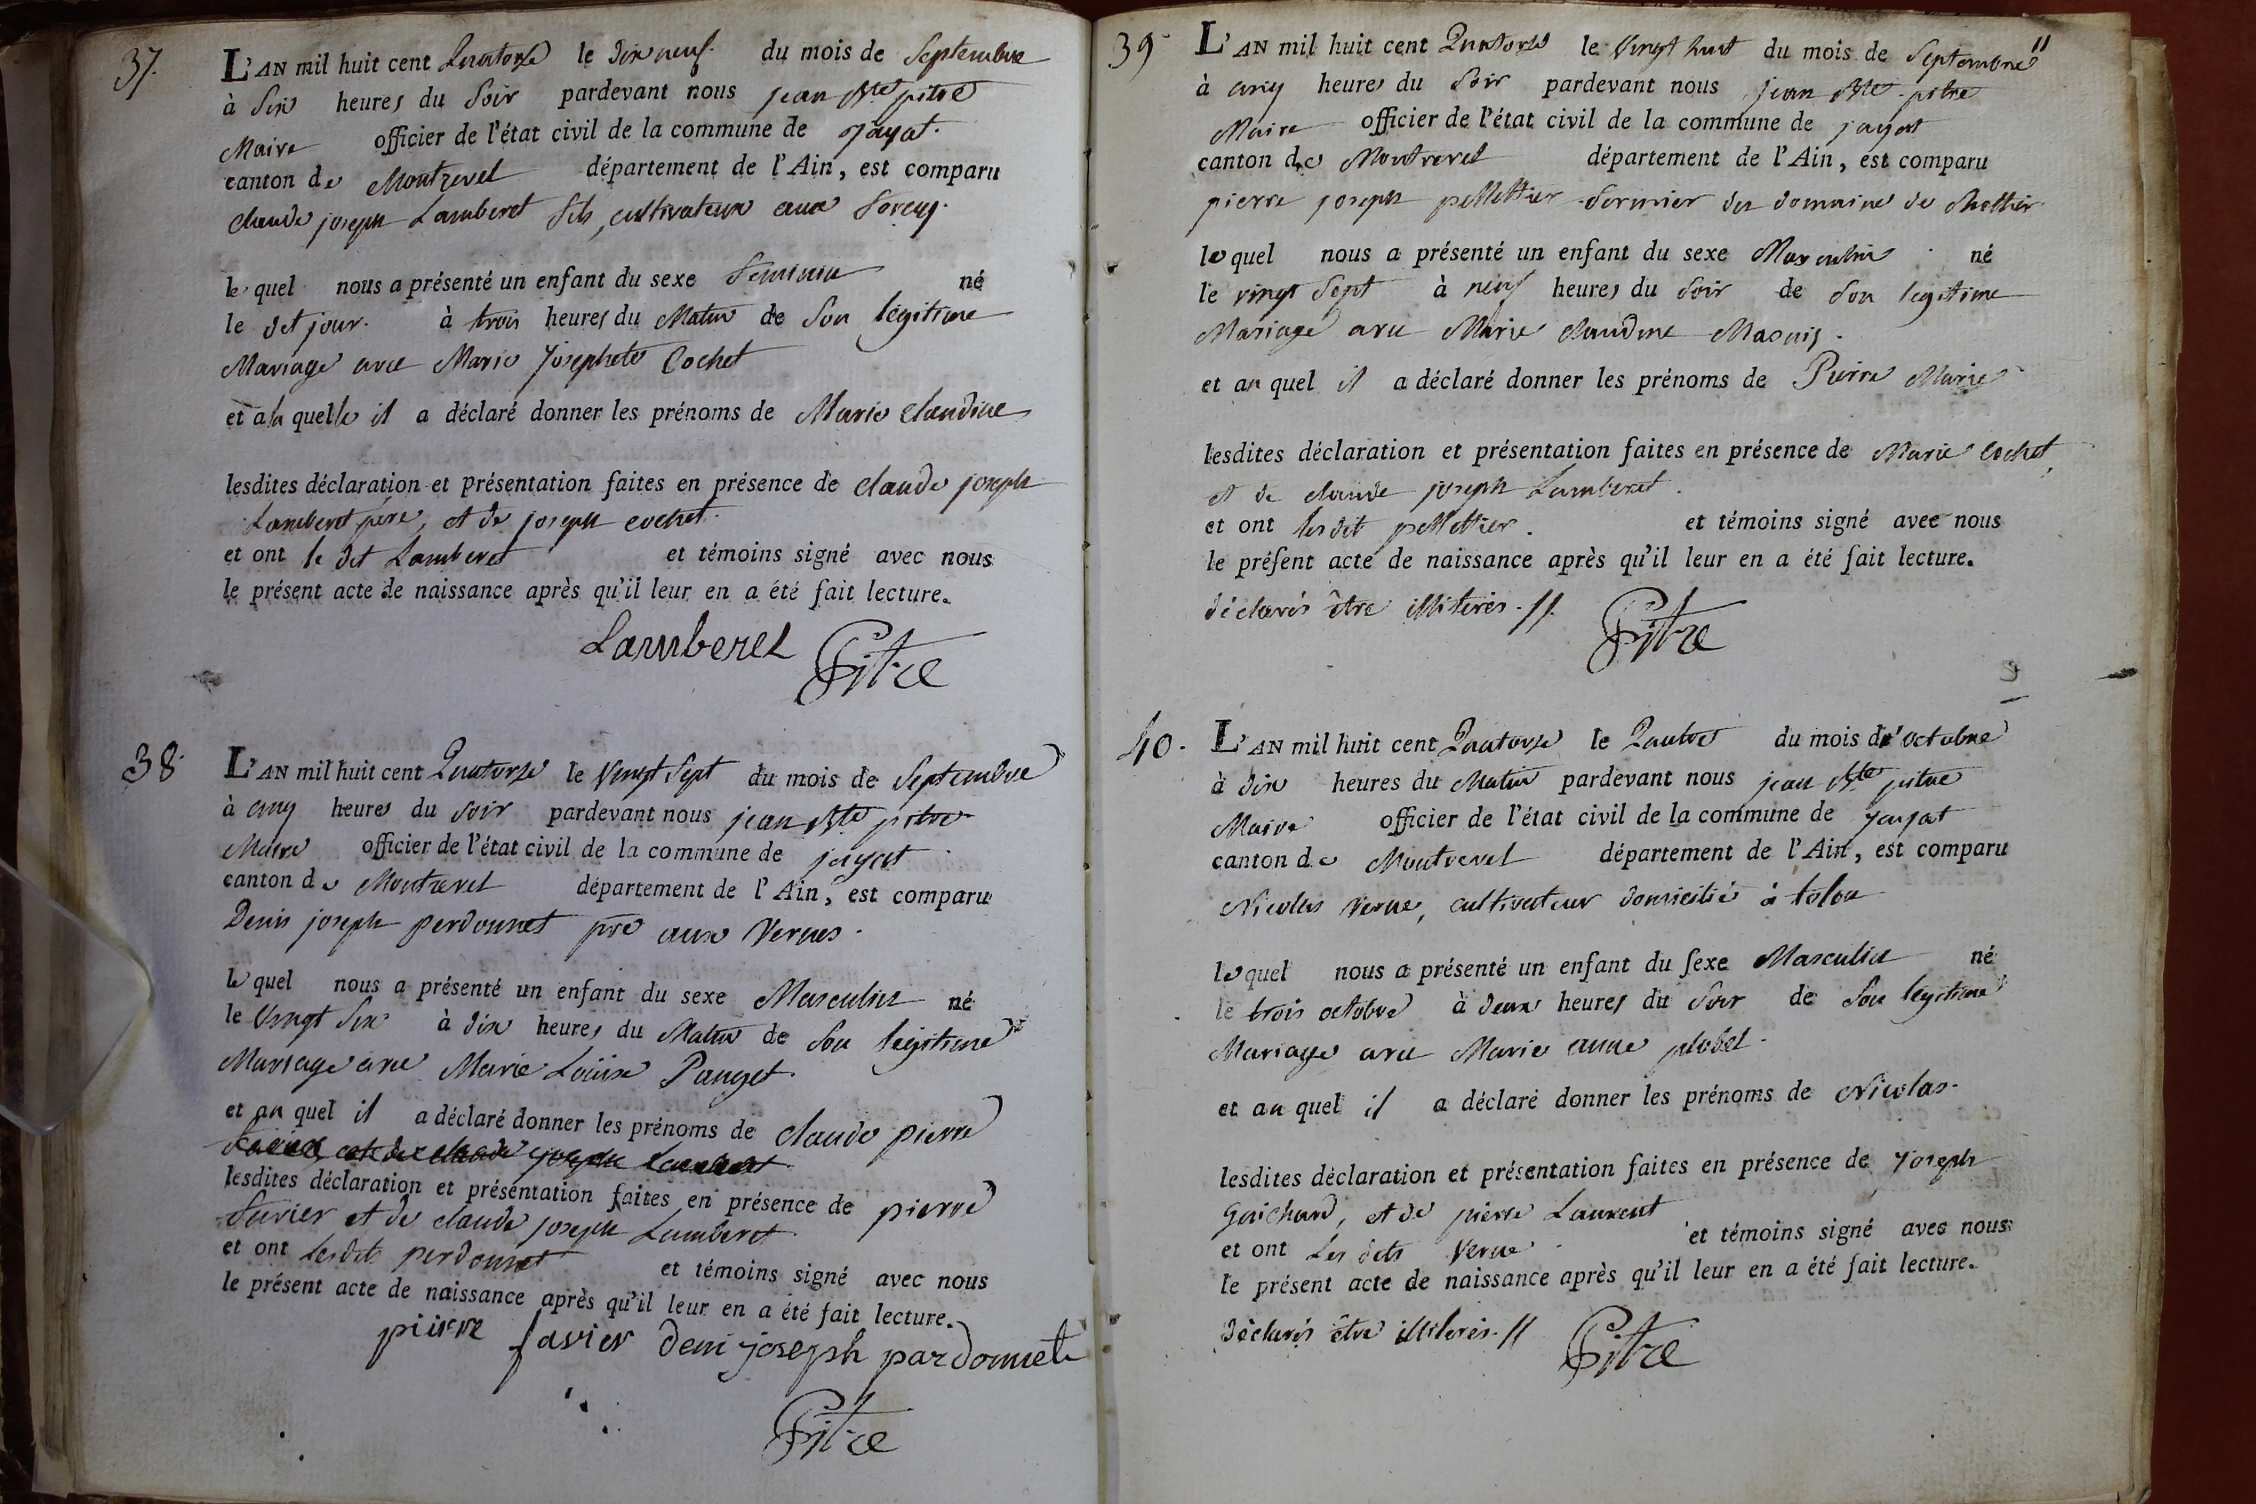 37.
L'AN mil huit cent Quatorze le dix neuf du mois de Septembre
à Six heures du Soir pardevant nous jean Bte pitre
Maire officier de l'état civil de la commune de jayat.
canton de Montrevel département de l'Ain, est comparu
claude joseph Lamberet fils, cultivateur aux
le quel nous a présenté un enfant du sexe feminin né
le dit jour. à trois heures du Matin de Son légitime
Mariage avec Marie josephete Cochet
et à la quelle il a déclaré donner les prénoms de Marie claudine
lesdites déclaration et présentation faites en présence de claude joseph
Lamberet père, et de joseph cochet.
et ont le dit Lamberet et témoins signé avec nous
le présent acte de naissance après qu'il leur en a été fait lecture.
Lamberet Pitre
38.
L'AN mil huit cent Quatorze le Vingt Sept du mois de Septembre
à cinq heures du Soir pardevant nous jean Bte pitre
Maire officier de l'état civil de la commune de jayat
canton de Montrevel département de l'Ain, est comparu
Denis joseph perdonnet pre aux Vernes.
le quel nous a présenté un enfant du sexe Masculin né
le Vingt Six à dix heures du Matin de Son légitime
Mariage avec Marie Loüise Panget.
et au quel il a déclaré donner les prénoms de claude pierre
lesdites déclaration et présentation faites en présence de pierre
favier et de claude joseph Lamberet
et ont Lesdits perdonnet et témoins signé avec nous
le présent acte de naissance après qu'il leur en a été fait lecture.
pierre favier deni joseph pardonnet
Pitre
39.
L'AN mil huit cent Quatorze le Vingt huit du mois de Septembre
à cinq heures du Soir pardevant nous jean Bte pitre
Maire officier de l'état civil de la commune de jayat
canton de Montrevel département de l'Ain, est comparu
pierre joseph pellettier fermier du domaine de
le quel nous a présenté un enfant du sexe Masculin né
le vingt Sept à neuf heures du Soir de Son legitime
Mariage avec Marie claudine
et au quel il a déclaré donner les prénoms de Pierre Marie
lesdites déclaration et présentation faites en présence de Marie Cochet,
et de claude joseph Lamberet.
et ont lesdit pellettier. et témoins signé avec nous
le présent acte de naissance après qu'il leur en a été fait lecture.
déclarés être illiterés. //. Pitre
40.
L'AN mil huit cent Quatorze le Quatre du mois d'octobre
à dix heures du Matin pardevant nous jean Bte pitre
Maire officier de l'état civil de la commune de jayat
canton de Montrevel département de l'Ain, est comparu
Nicolas Verne, cultivateur domicilié à tolou
le quel nous a présenté un enfant du sexe Masculin né
le trois octobre à deux heures du Soir de Son legitime
Mariage avec Marie anne plobel.
et au quel il a déclaré donner les prénoms de Nicolas.
lesdites déclaration et présentation faites en présence de joseph
Guichard, et de pierre Laurent
et ont Les dits Verne. et témoins signé avec nous
le présent acte de naissance après qu'il leur en a été fait lecture.
déclarés être illiterés. // Pitre